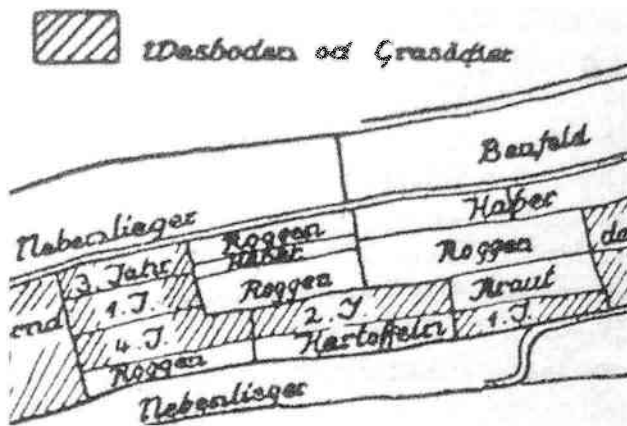 Wasboden od Grasäcker
Baufeld
Nebenlieger
Haber
Roggen
Haber
Roggen
Roggen
3. Jahr
1. J.
2. J.
Kraut
4. J.
Kartoffeln
1. J.
Roggen
Nebenlieger